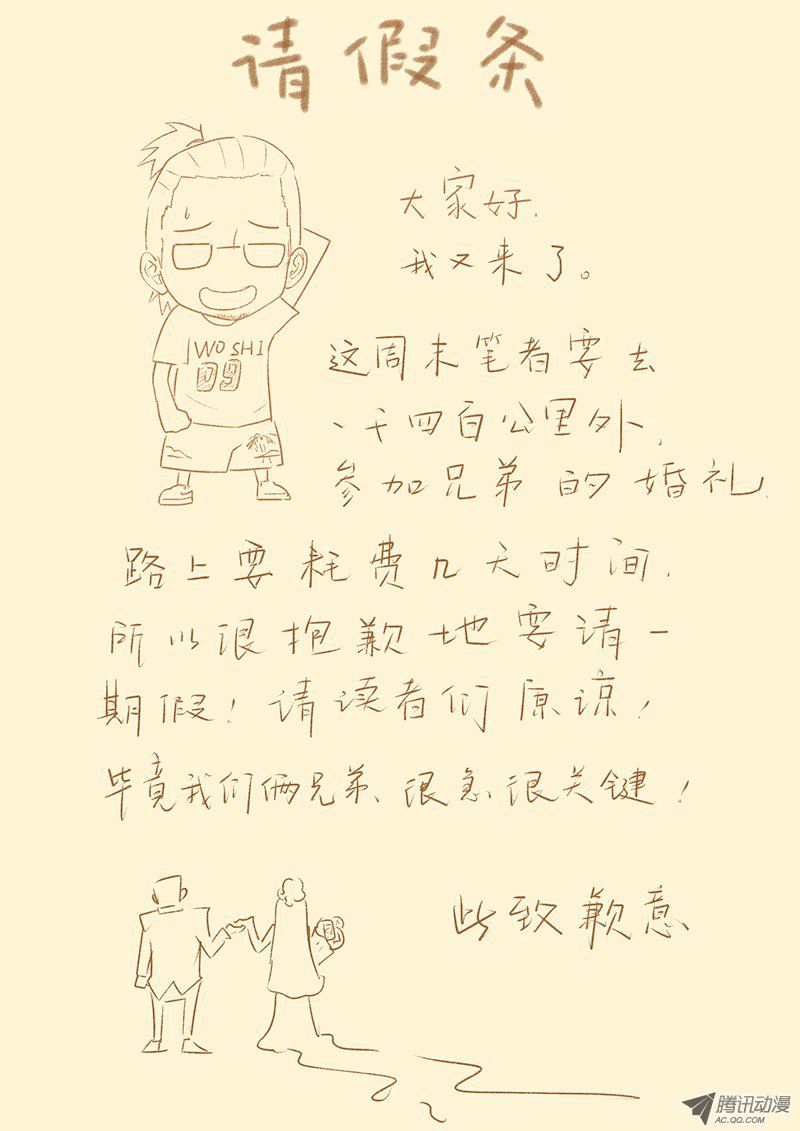 请假条
大家好,
我又来了。
WO SHI
09
这周末笔者要去
一千四百公里外,
参加兄弟的婚礼,
路上要耗费几天时间,
所以很抱歉地要请一
期假!请读者们原谅!
毕竟我们俩兄弟、很急很关键!
此致歉意
腾讯动漫
AC.QQ.COM